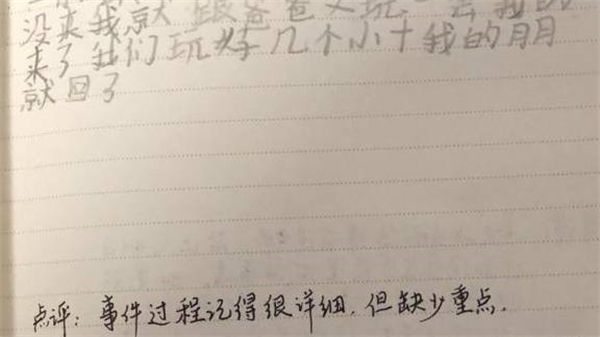 没来我就跟爸爸又玩一会我的
来了我们玩好几个小十我的月月
就回了
点评：事件过程记得很详细，但缺少重点.